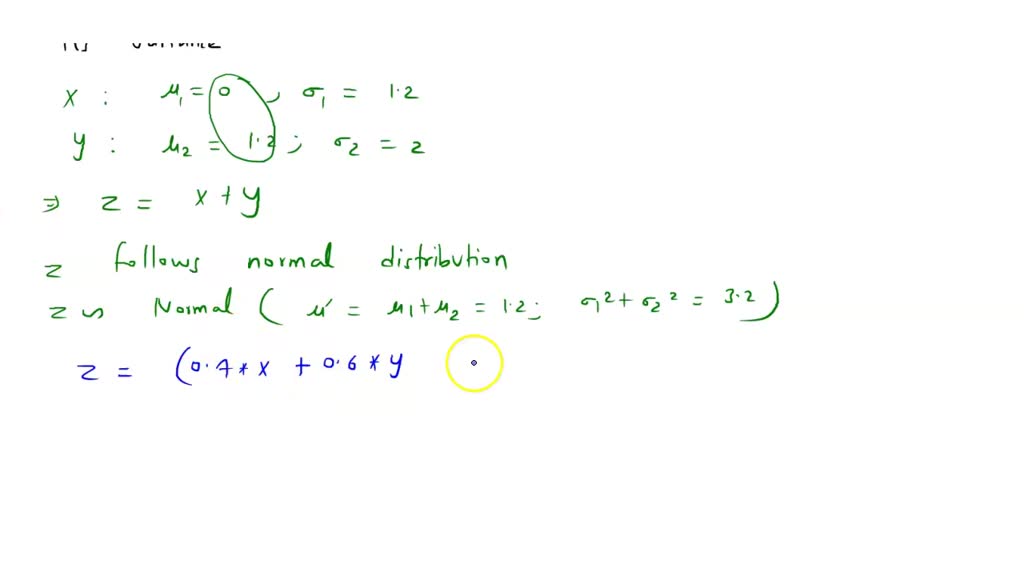 x : μ₁ = 0 , σ₁ = 1.2
y : μ₂ = 1.2 ; σ₂ = 2
⇒ z = x + y
z follows normal distribution
z ~ Normal ( μ' = μ₁+μ₂ = 1.2 ; σ₁² + σ₂² = 3.2 )
z = (0.4 * x + 0.6 * y